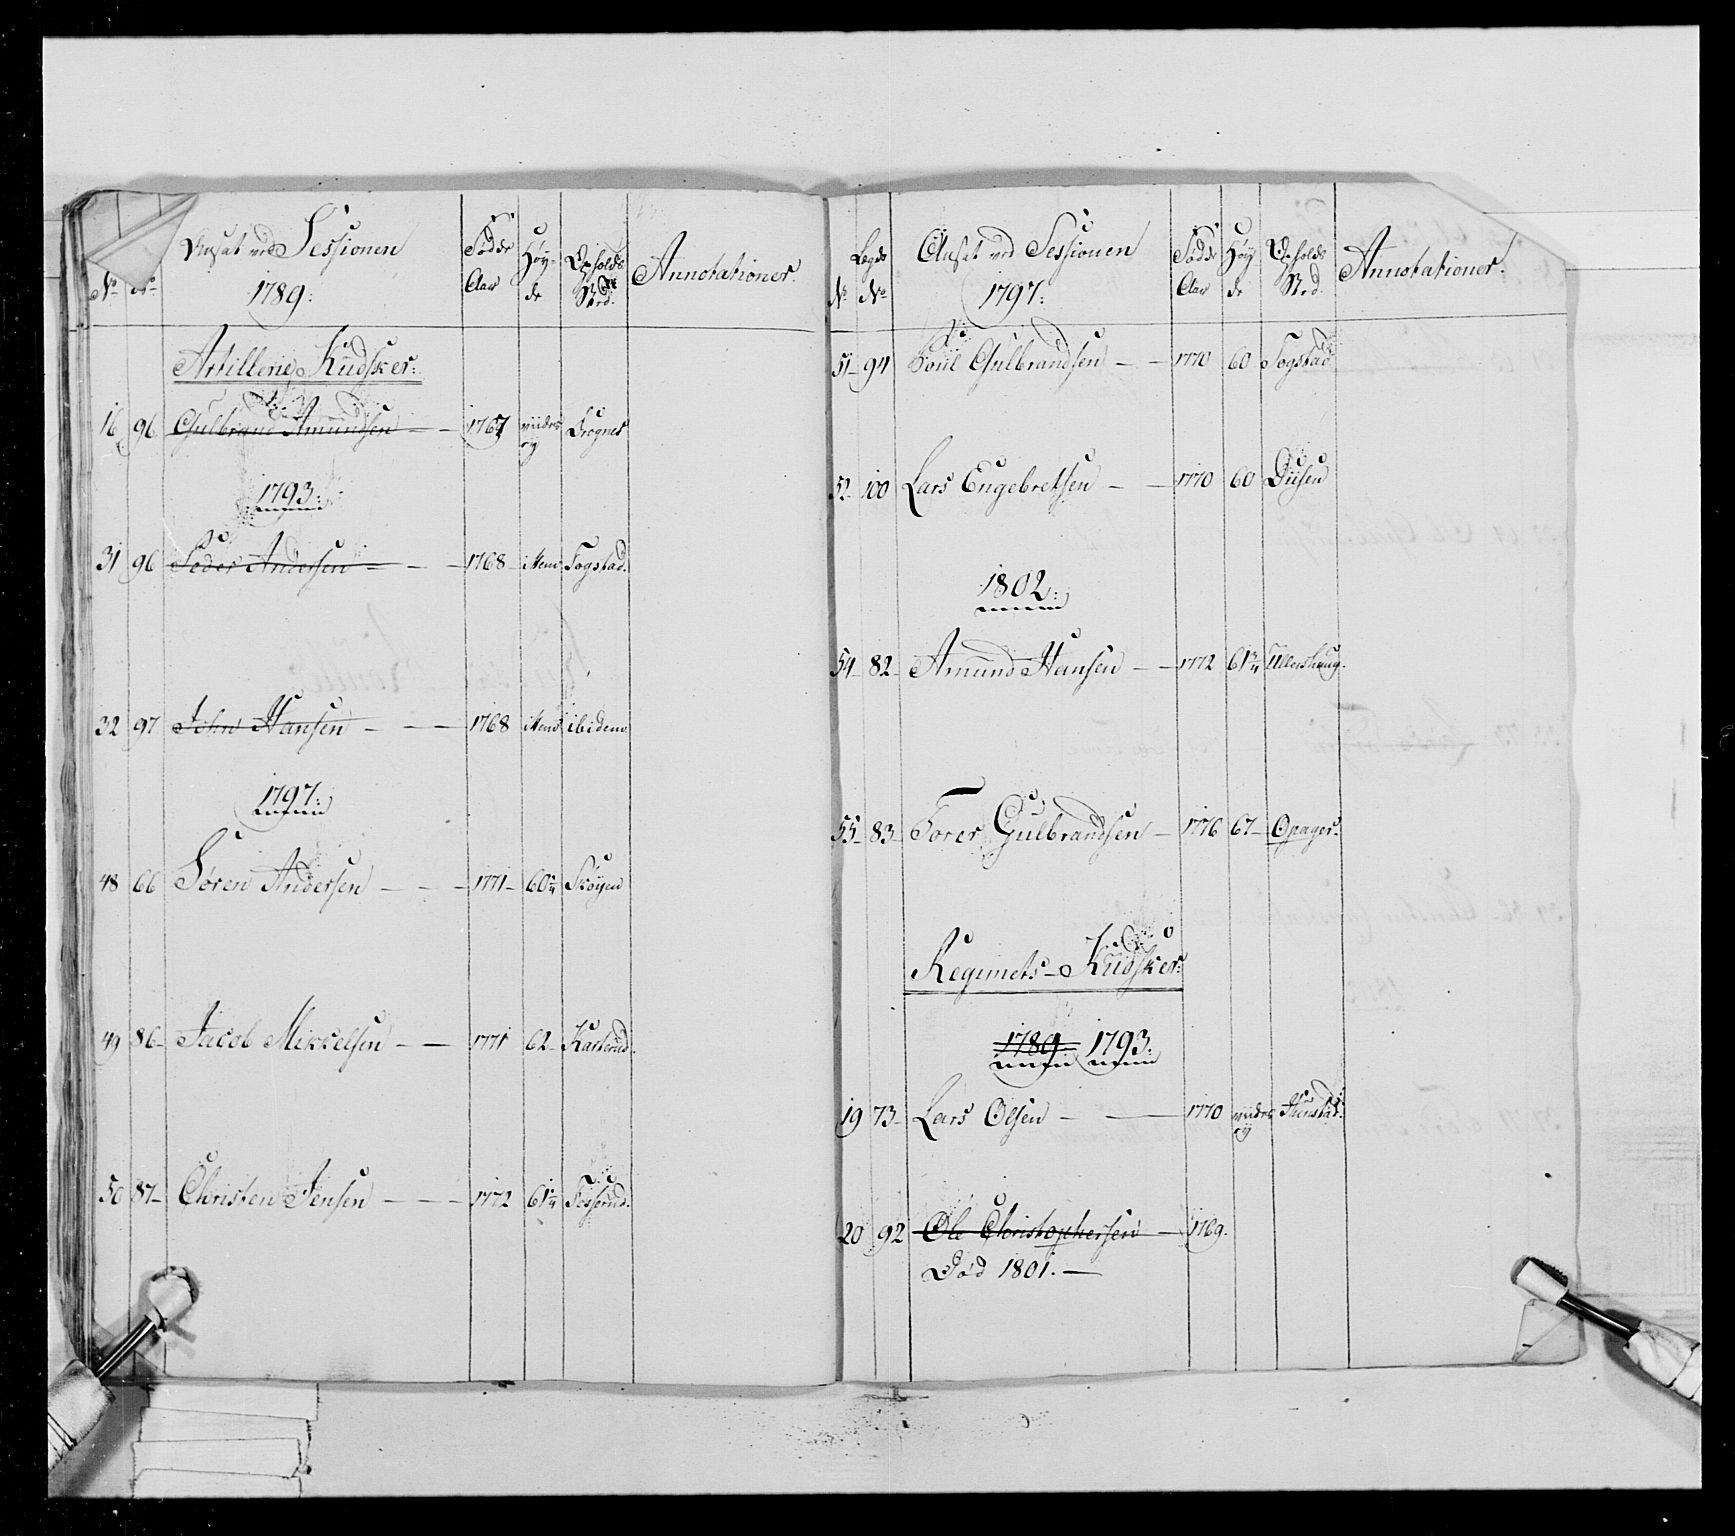 No No Ansat ved Sessionen 1789: Födde Aar Höyde Opholds Sted Annotationer.
Artillerie Kudsker:
16 96 Gulbrand Amundsen — 1767 under ey Frogner
1793:
31 96 Peder Andersen — — 1768 Item Fogstad.
32 97 John Hansen — — — 1768 Item ibidem
1797:
48 66 Søren Andersen — — — 1771 60 1/4 Skøyen
49 86 Jacob Mikkelsen — — 1771 62 Karlsrud.
50 87 Christen Jensen — — — 1772 61 1/4
No Legds No Ansat ved Sessionen 1797: Födde Aar Höyde Opholds Sted Annotationer.
51 94 Poul Gulbrandsen — — 1770 60 Fogstad
52 100 Lars Engebretsen — — 1770 60
1802:
54 82 Amund Hansen — — 1772 61 3/4 Ullershaug.
55 83 Torer Gulbrandsen — 1776 67 Opager.
Regimets-Kudsker:
1789. 1793:
19 73 Lars Olsen — — 1770 under ey
20 92 Ole Christophersen — 1769.
Död 1801. —